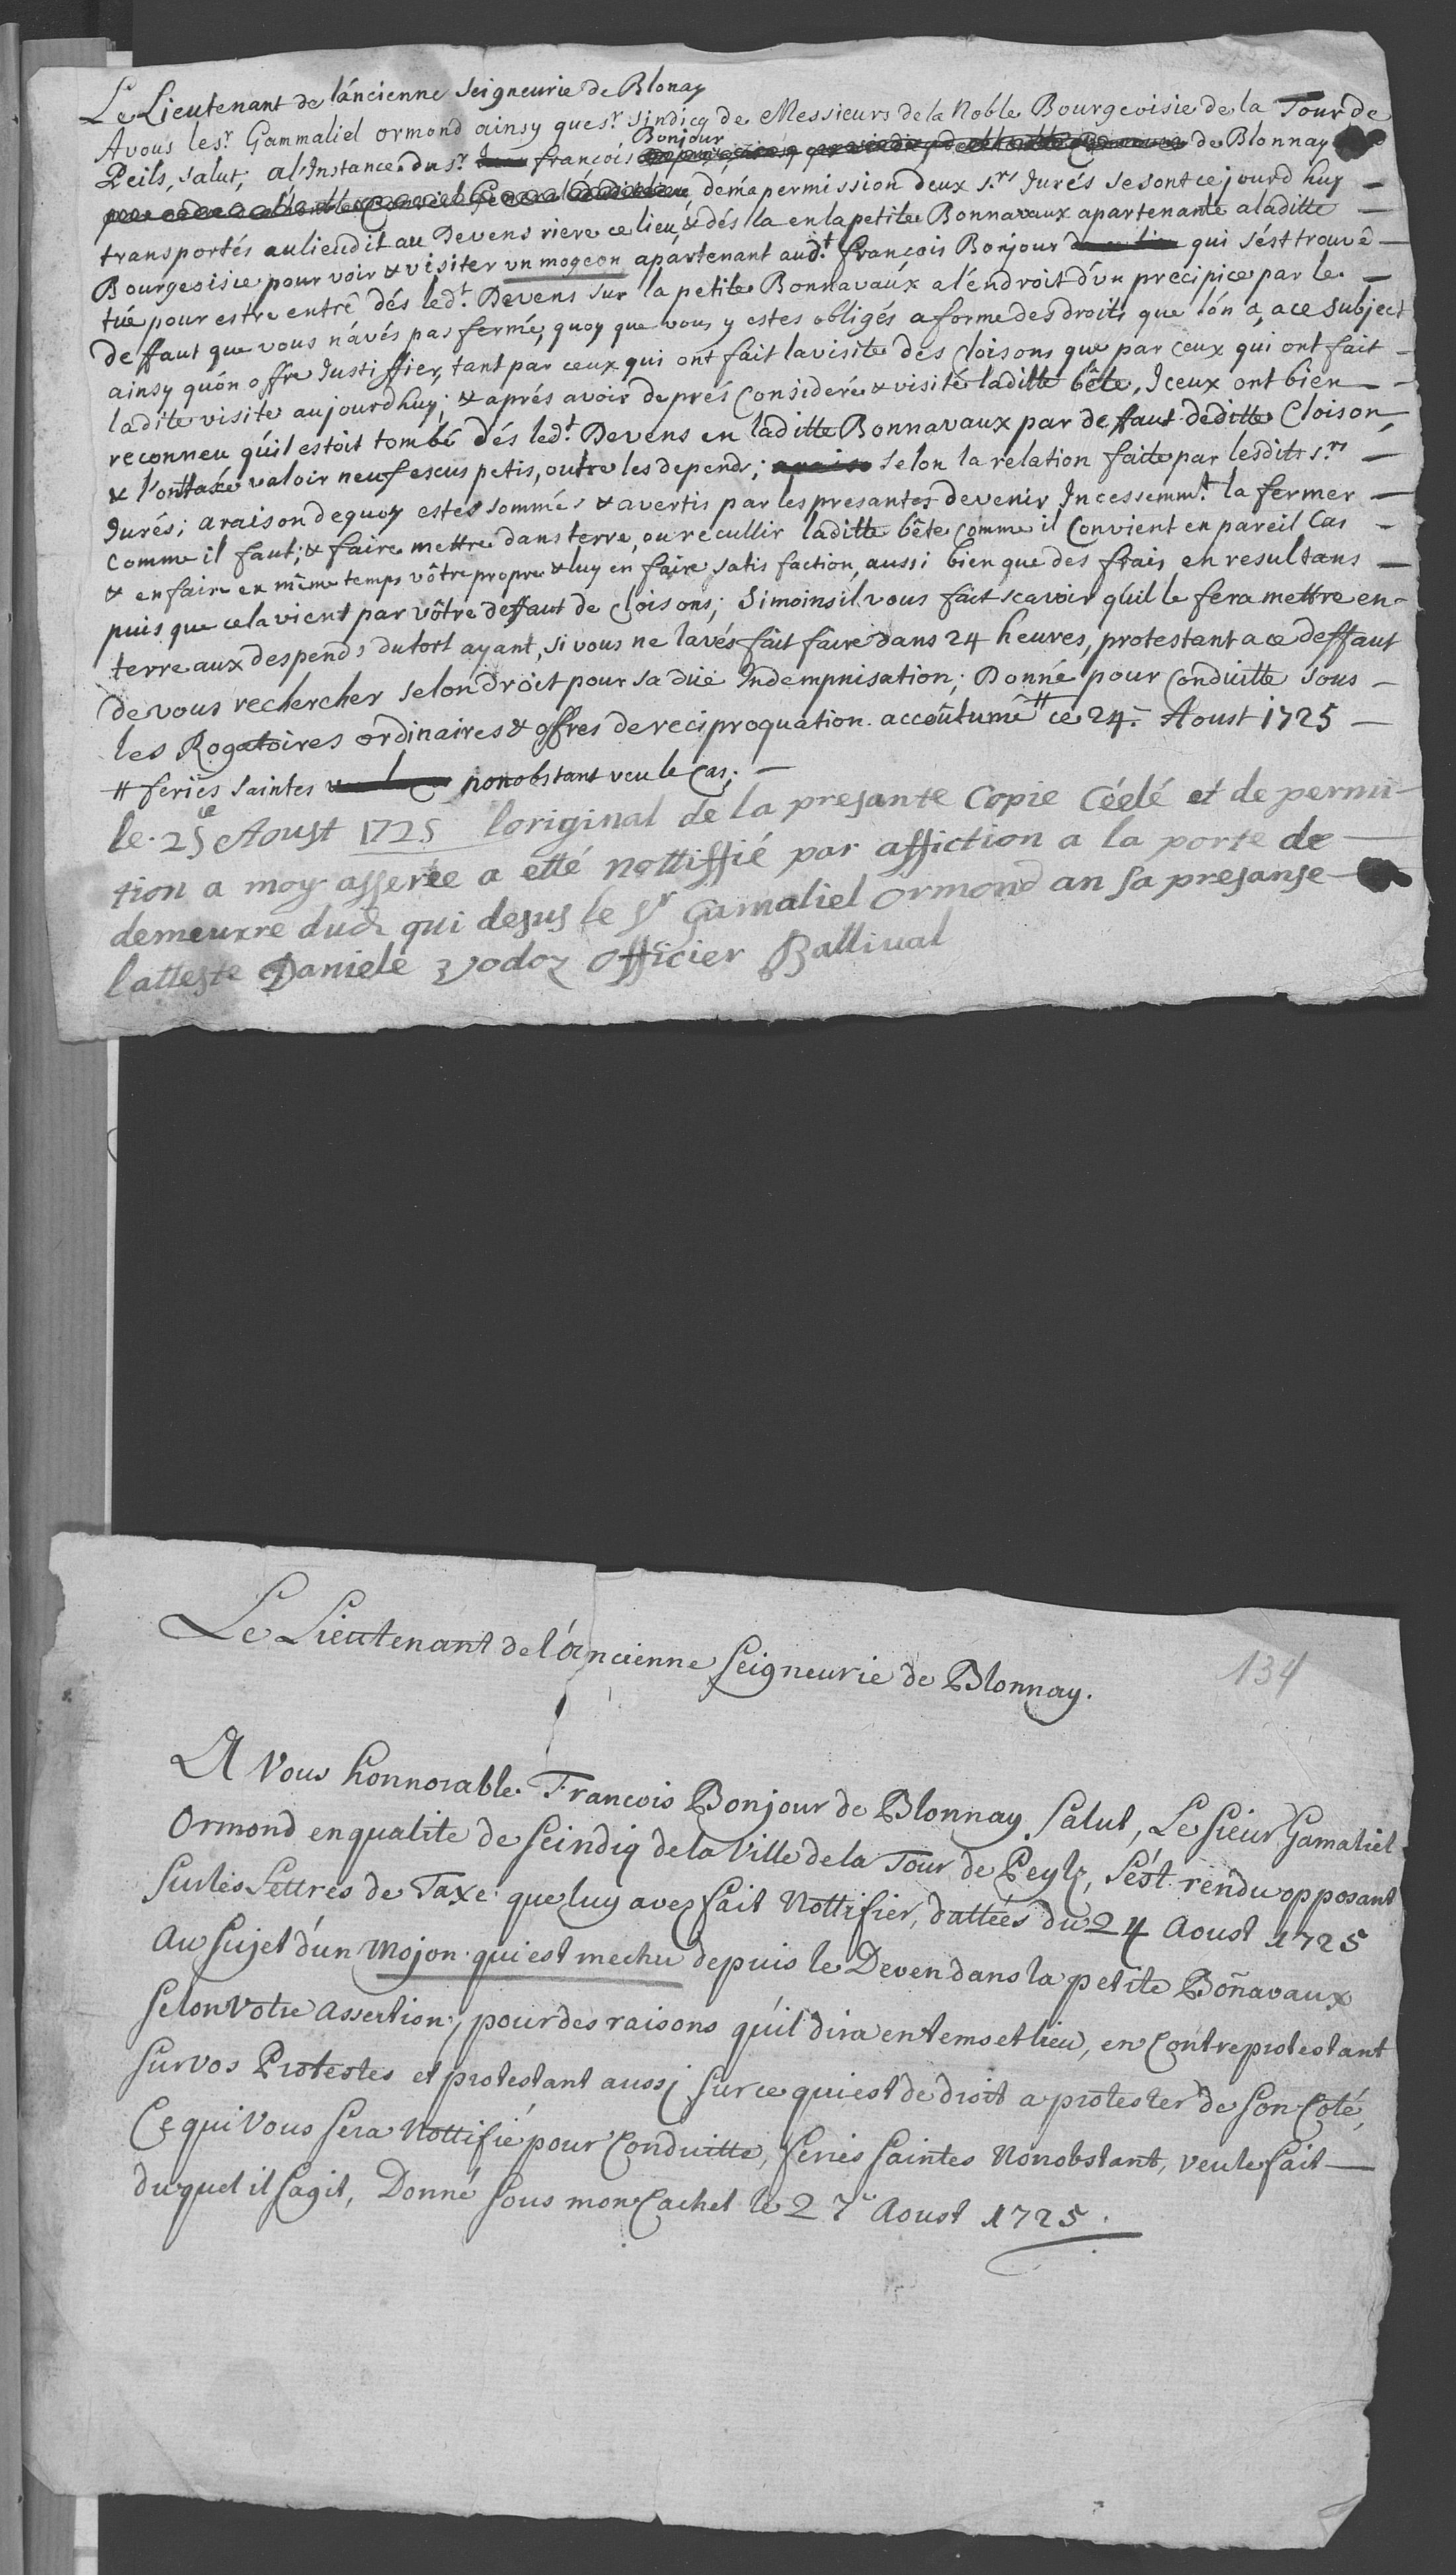 Le Lieutenant de láncienne Seigneurie de Blonay
A vous le sr. Gammaliel ormond ainsy que sr. sindicq de Messieurs de la Noble Bourgeoisie de la Tour de
Peils, salut; al'Instance du sr. françois Bonjour de Blonnay
de ma permission deux s.rs Jurés se sont cejourdhuy
transportés au lieudit au Devens riere ce lieu, & dés la en la petite Bonnavaux apartenante a laditte
Bourgeoisie pour voir & visiter vn mogeon apartenant aud.t françois Bonjour qui sést trouvé
tüé pour estre entré dés led.t Devens sur la petite Bonnavaúx a léndroit dún precipice par le
deffaut que vous návés pas fermé, quoy que vous y estes obligés a forme des droits que lón a, a ce subject
ainsy quón offre Justiffier, tant par ceux qui ont fait la visite des Cloisons que par ceux qui ont fait
ladite visite aujourdhuy; & aprés avoir de prés Consideré & visité laditte bête, Jceux ont bien
reconneu qúil estoit tombé dés led.t Devens en laditte Bonnavaux par deffaut de ditte Cloison,
& l'ont taxée valoir neuf escus petis, outre les depends; selon la relation faite par lesdits s.rs
Jurés; a raison dequoy estes sommés & avertis par les presantes de venir Incessemm.t la fermer
comme il faut; & faire mettre dans terre, ou recullir laditte bête comme il Convient en pareil Cas
& en faire en même temps vôtre propre & luy en faire satisfaction, aussi bien que des frais en resultans
puis que cela vient par vôtre deffaut de Cloisons; Simoins il vous fait scavoir qúil le fera mettre en
terre aux despends du tort ayant, si vous ne lavés fait faire dans 24 heures, protestant a ce deffaut
de vous rechercher selon droit pour sa düe Indempnisation; Donné pour Conduitte sous
les Rogatoires ordinaires & offres de reciproquation accoûtumé # ce 24.e Aoust 1725
# feriës saintes nonobstant veu le Cas;
le 25e Aoust 1725 loriginal de la presante Copie Céelé et de permi-
tion a moy asserée a etté nottiffié par affiction a la porte de
demeurre dud. qui desus le sr Gamaliel ormond an sa presanse
latteste Daniele Vodoz officier Ballival
Le Lieutenant de l'áncienne Seigneurie de Blonnay.
134
A Vous honnorable François Bonjour de Blonnay Salut, Le Sieur Gamaliel
Ormond en qualite de Seindiq de la Ville de la Tour de Peylz, Sést rendu opposant
Sur les Lettres de Taxe que luy avez fait Nottifier, dattées du 24 Aoust 1725
Au Sujet d'un Mojon qui est mechu depuis le Deven dans la petite Boñavaux
Selon Votre assertion, pour des raisons qúil dira en tems et lieu, en Contreprotestant
Sur vos Protestes et protestant aussj sur ce qui est de droit a protester de son Coté,
Ce qui Vous Sera Nottifié pour Conduitte, feries Saintes Nonobstant, veu le fait
duquel il sagit, Donné Sous mon Cachet le 27e Aoust 1725.